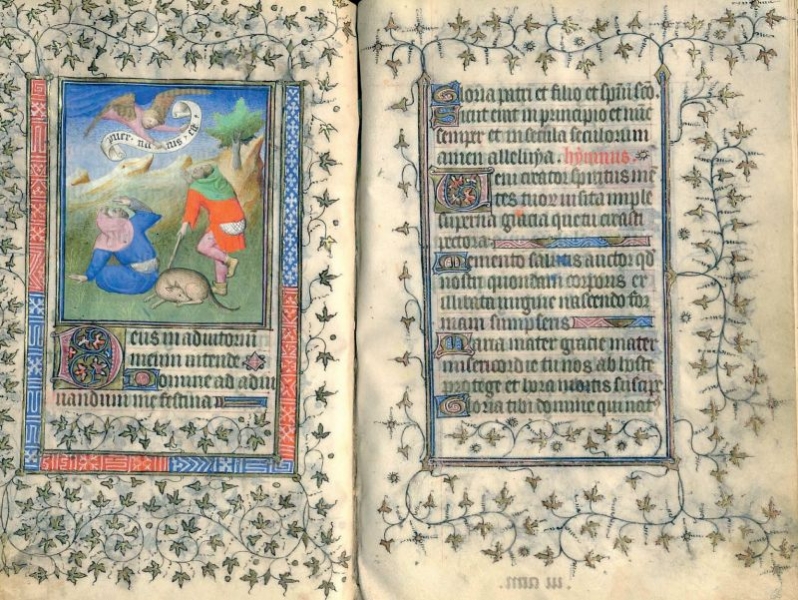 puer natus est
Deus in adiutorium
meum intende
Domine ad adiu
uandum me festina
Gloria patri et filio et spūi sco.
Sicut erat in principio et nūc
semper et in secula seculorum
amen alleluya. hymnus.
Ueni creator spiritus mē
tes tuor uisita imple
superna gracia que tu creasti
pectora.
Memento salutis auctor qd
nostri quondam corporis ex
illibata uirgine nascendo for
mam sumpseris
Maria mater gracie mater
misericordie tu nos ab hoste
protege et hora mortis suscipe
Gloria tibi domine qui nat